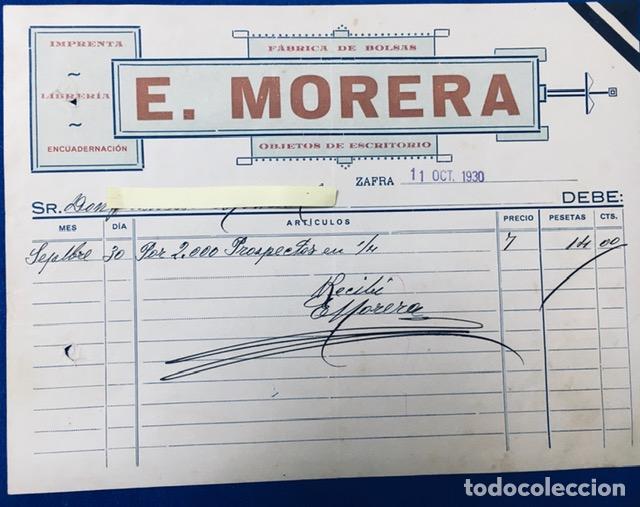 IMPRENTA
~
LIBRERÍA
~
ENCUADERNACIÓN
FÁBRICA DE BOLSAS
E. MORERA
OBJETOS DE ESCRITORIO
ZAFRA 11 OCT. 1930
SR. Don DEBE:
MES DÍA ARTÍCULOS PRECIO PESETAS CTS.
Septbre 30 Por 2.000 Prospectos en 1/4 7 14 00
Recibí
E Morera
todocoleccion.net